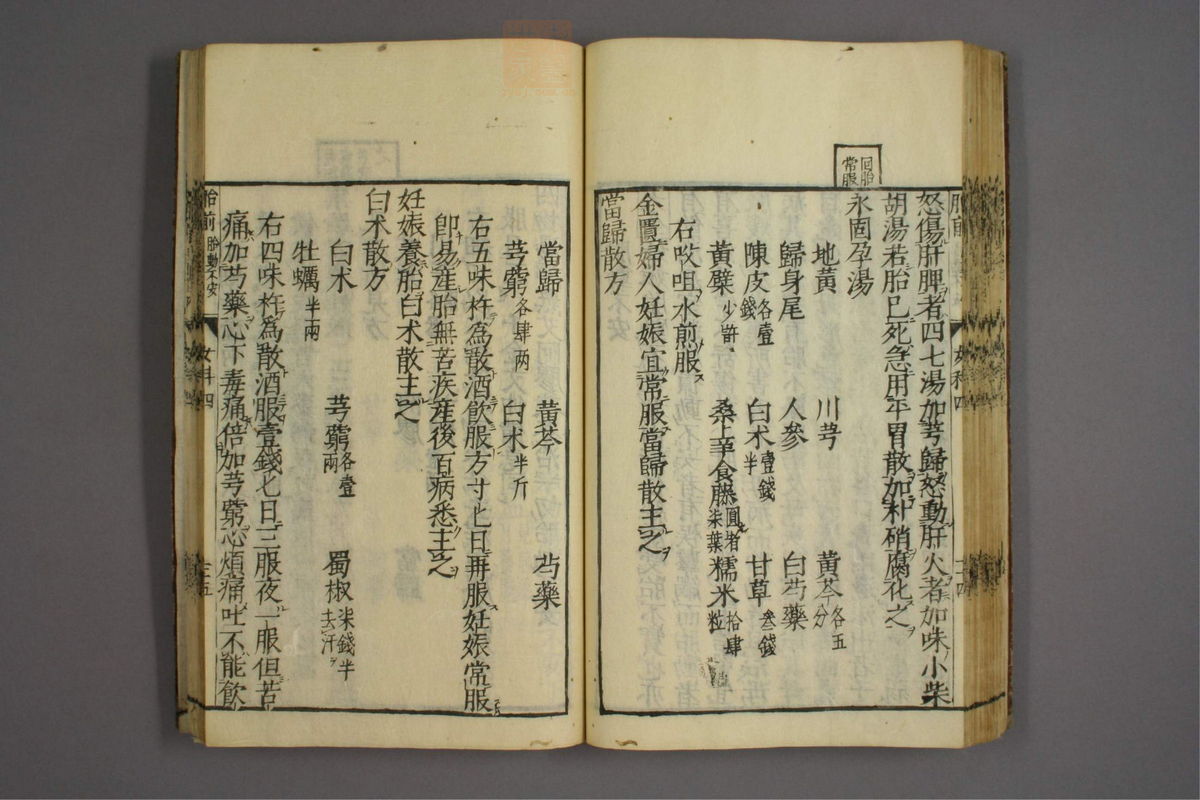 胎前
女科四
二十四
怒傷肝脾者四七湯加芎歸怒動肝火者加味小柴
胡湯若胎已死急用平胃散加朴硝腐化之
固胎
常服
永固孕湯
地黃 川芎 黃芩各五分
歸身尾 人參 白芍藥
陳皮各壹錢 白朮壹錢半 甘草叄錢
黃檗少許 桑上羊食藤圓者柒葉 糯米拾肆粒
右㕮咀水煎服
金匱婦人妊娠宜常服當歸散主之
當歸散方
當歸 黃芩 芍藥
芎藭各肆兩 白朮半斤
右五味杵為散酒飲服方寸匕日再服妊娠常服
即易產胎無苦疾產後百病悉主之
妊娠養胎白朮散主之
白朮散方
白朮 芎藭各壹兩 蜀椒柒錢半去汗
牡蠣半兩
右四味杵為散酒服壹錢匕日三服夜一服但苦
痛加芍藥心下毒痛倍加芎藭心煩痛吐不能飲
胎前 胎動不安
女科四
二十五